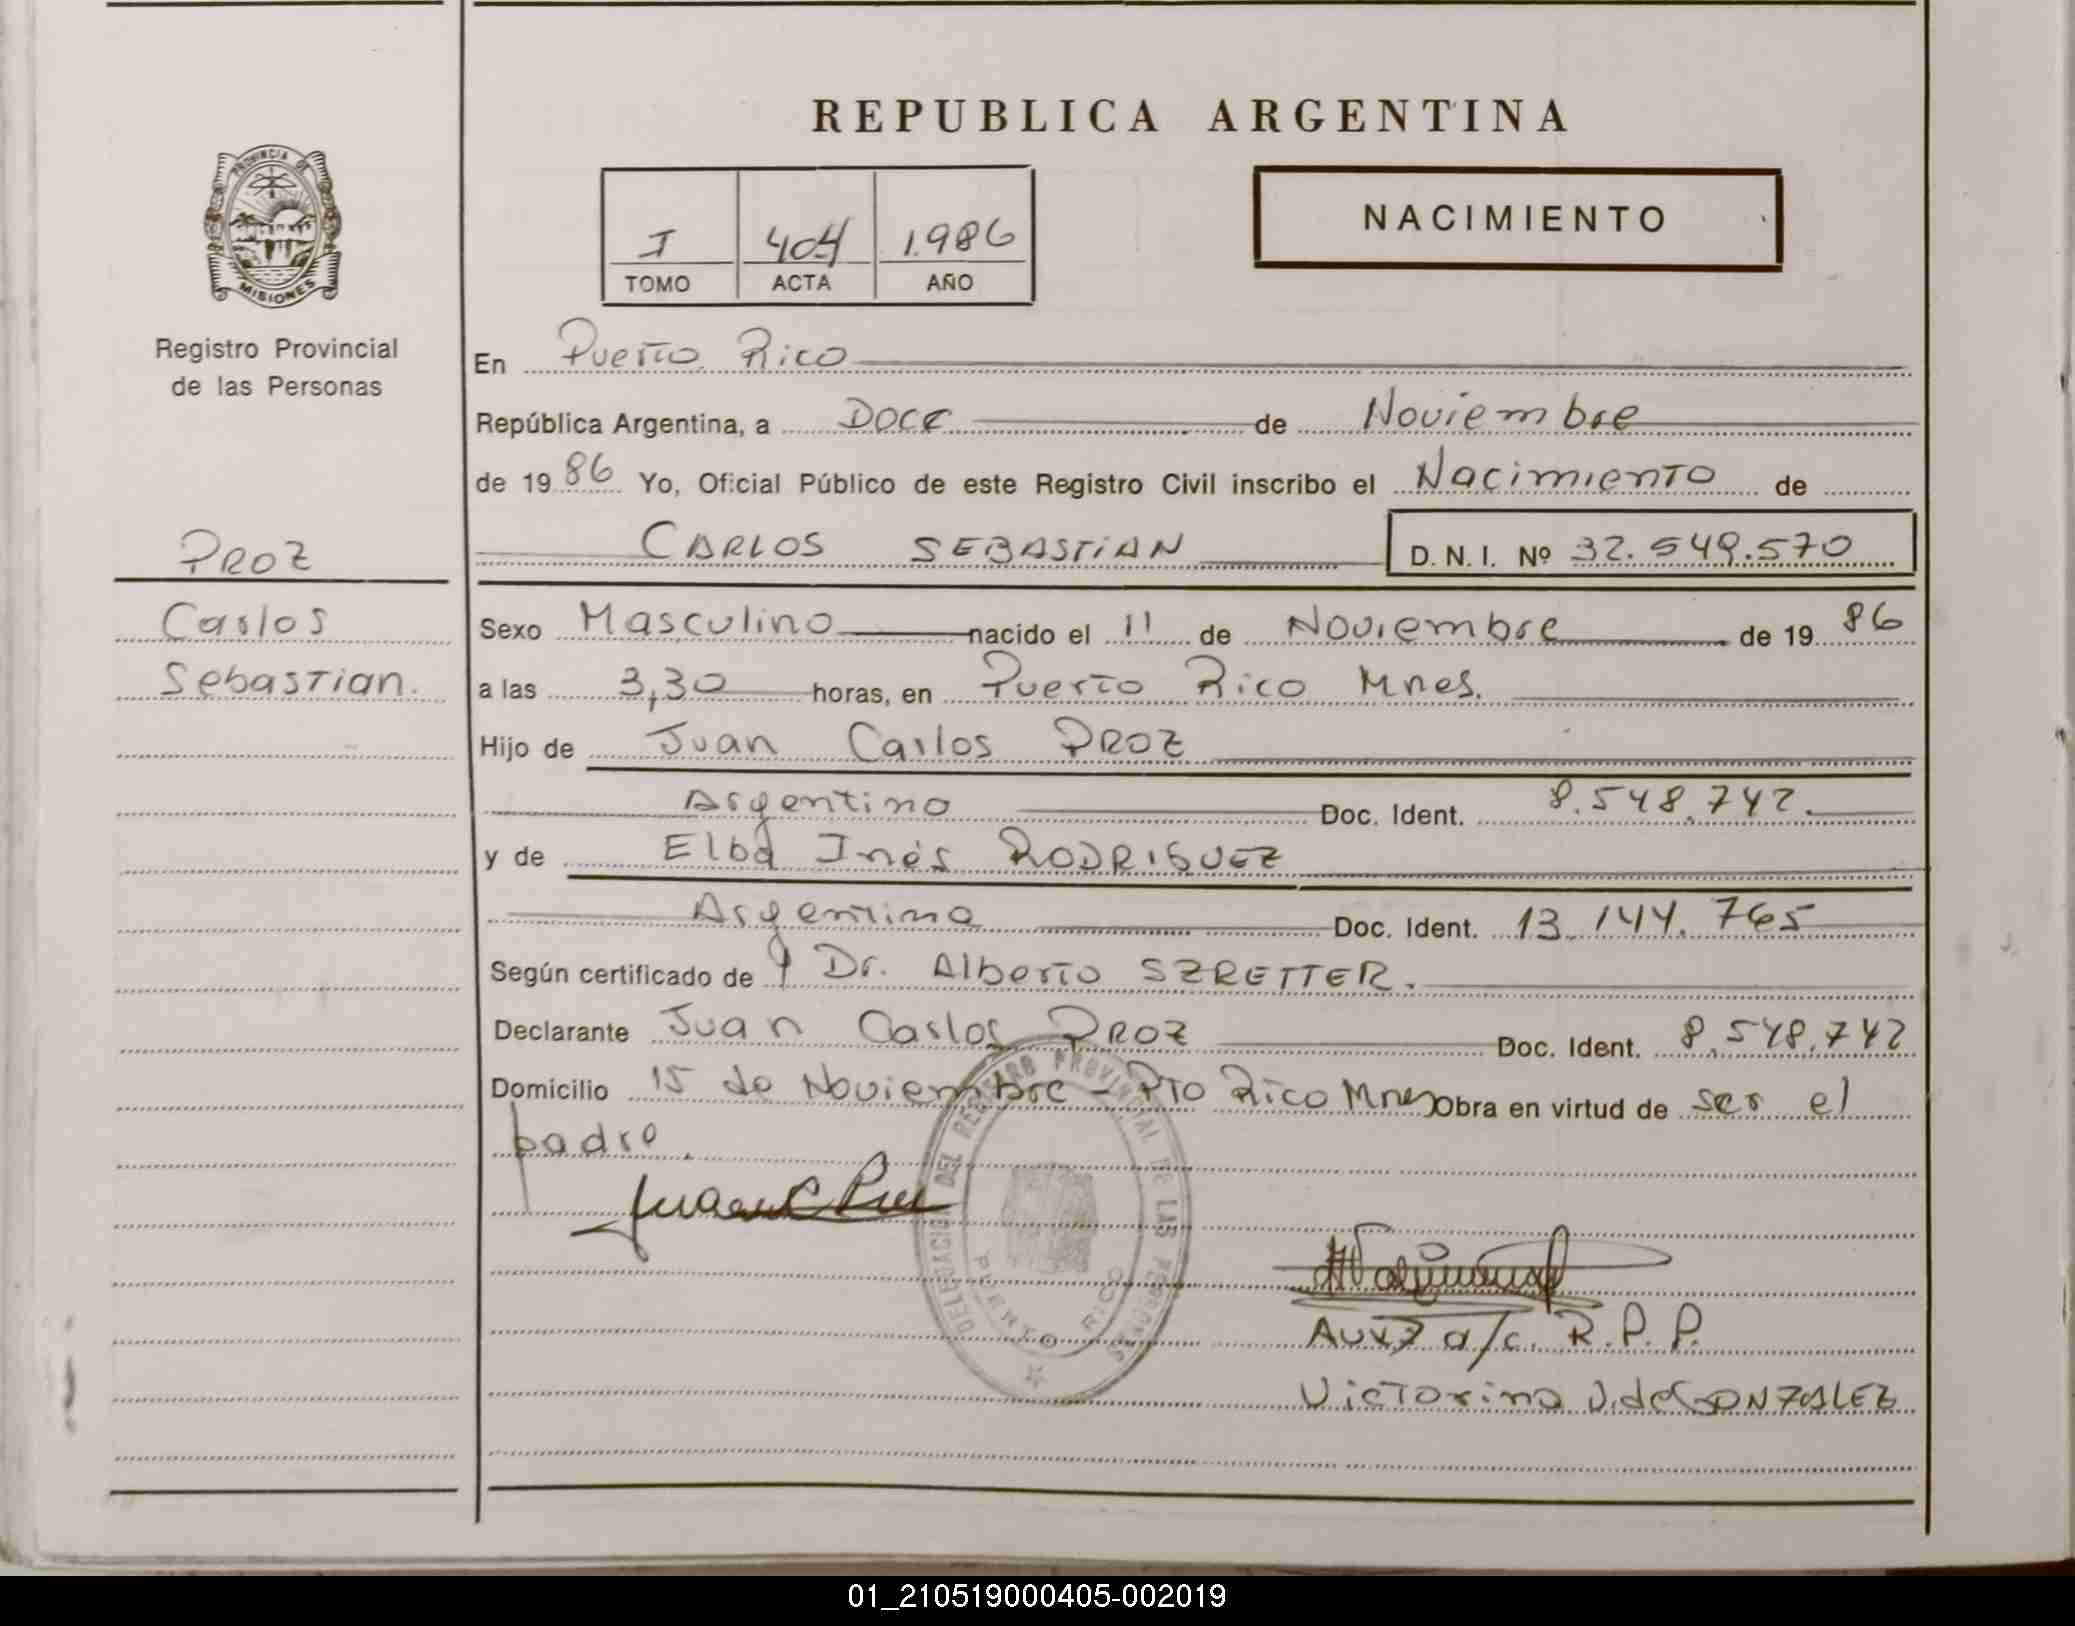 REPUBLICA ARGENTINA
PROVINCIA DE
MISIONES
Registro Provincial
de las Personas
I 404 1.986
TOMO ACTA AÑO
NACIMIENTO
En Puerto Rico
República Argentina, a Doce de Noviembre
de 19 86 Yo, Oficial Público de este Registro Civil inscribo el Nacimiento de
CARLOS SEBASTIAN D. N. I. Nº 32.549.570
PROZ
Carlos
Sebastian.
Sexo Masculino nacido el 11 de Noviembre de 19 86
a las 3,30 horas, en Puerto Rico Mnes.
Hijo de Juan Carlos PROZ
Argentino Doc. Ident. 8.548.742.
y de Elba Inés RODRIGUEZ
Argentina Doc. Ident. 13.144.765
Según certificado de Dr. Alberto SZRETTER.
Declarante Juan Carlos PROZ Doc. Ident. 8.548.742
Domicilio 15 de Noviembre - Pto Rico Mnes Obra en virtud de ser el
padre.
DELEGACION DEL REGISTRO PROVINCIAL DE LAS PERSONAS
PUERTO RICO
a/c. R.P.P.
Victorina V. de GONZALEZ
01_210519000405-002019